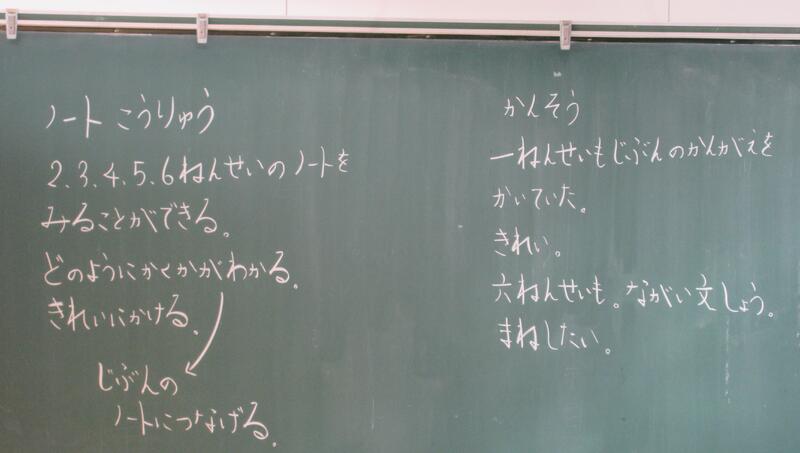 ノート こうりゅう
2.3.4.5.6ねんせいのノートを
みることができる。
どのようにかくかがわかる。
きれいにかける。
じぶんの
ノートにつなげる。
かんそう
一ねんせいもじぶんのかんがえを
かいていた。
きれい。
六ねんせいも。ながい文しょう。
まねしたい。